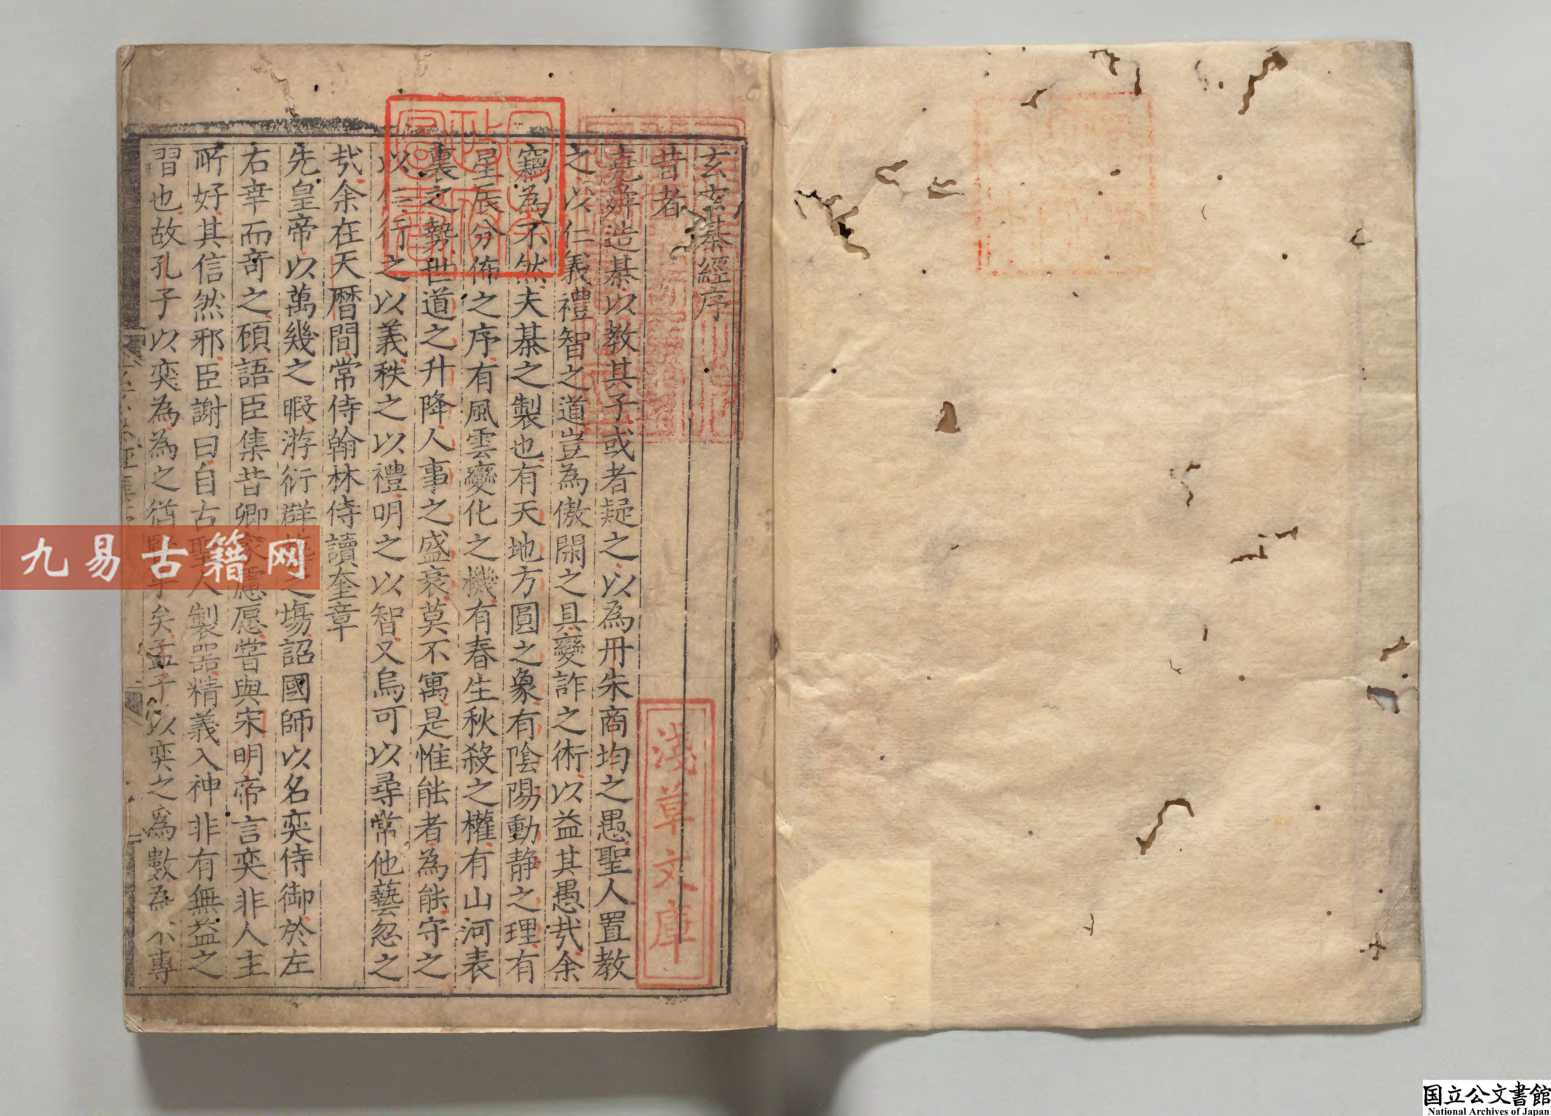 玄玄棊經序
昔者
堯舜造棊以教其子或者疑之以為丹朱商均之愚聖人置教
之以仁義禮智之道豈為傲閑之具變詐之術以益其愚哉余
竊為不然夫棊之製也有天地方圓之象有陰陽動靜之理有
星辰分佈之序有風雲變化之機有春生秋殺之權有山河表
裏之勢世道之升降人事之盛衰莫不寓是惟能者為能守之
以仁行之以義秩之以禮明之以智又烏可以尋常他藝忽之
哉余在天曆間常侍翰林侍讀奎章
先皇帝以萬幾之暇游衍群之塲詔國師以名奕侍御於左
右幸而奇之碩語臣集昔卿家虞愿嘗與宋明帝言奕非人主
所好其信然邪臣謝曰自古聖人製器精義入神非有無益之
習也故孔子以奕為為之猶賢乎矣孟子以奕之為數為不專
淺草文庫
九易古籍网
国立公文書館
National Archives of Japan